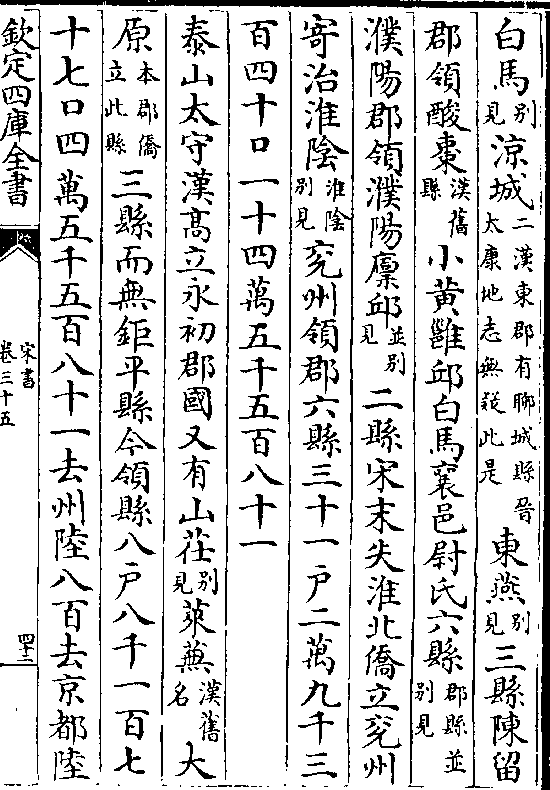 白馬別見涼城二漢東郡有聊城縣晉太康地志無疑此是東燕別見三縣陳留
郡領酸棗漢舊縣小黃雝邱白馬襄邑尉氏六縣郡縣並別見
濮陽郡領濮陽廪邱並別見二縣宋末失淮北僑立兖州
寄治淮陰淮陰別見兖州領郡六縣三十一戶二萬九千三
百四十口一十四萬五千五百八十一
泰山太守漢髙立永初郡國又有山茌別見萊蕪漢舊名大
原本郡僑立此縣三縣而無鉅平縣今領縣八戶八千一百七
十七口四萬五千五百八十一去州陸八百去京都陸
欽定四庫全書
宋書
卷三十五
四十二